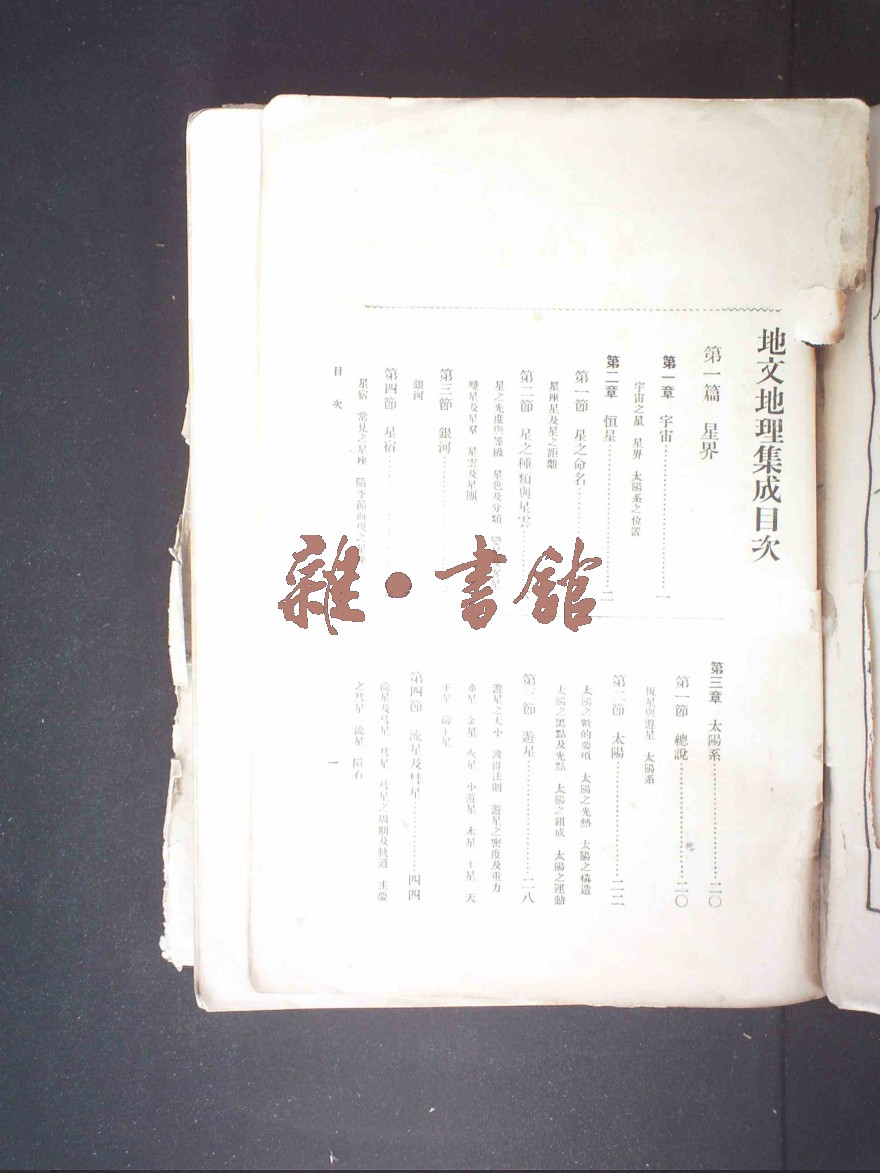 地文地理集成目次
第一篇　星界
第一章　宇宙……一
宇宙之星　星界　太陽系之位置
第二章　恒星……二
第一節　星之命名……
星座星及星之距離
第二節　星之種類與星雲……
星之光度與等級　星色及分類
雙星及星羣　星雲及星團
第三節　銀河……
銀河
第四節　星宿……
星宿　常見之星座　隨季節而現
第三章　太陽系……二〇
第一節　總說……二〇
恆星與遊星　太陽系
第二節　太陽……二二
太陽之數的要項　太陽之光熱　太陽之構造
太陽之黑點及光點　太陽之組成　太陽之運動
第三節　遊星……二八
遊星之大小　波得法則　遊星之密度及重力
水星　金星　火星　小遊星　木星　土星　天
王星　海王星
第四節　流星及彗星……四四
流星及彗星　彗星　彗星之周期及軌道　主要
之彗星　流星　隕石
目次　一
雜·書館